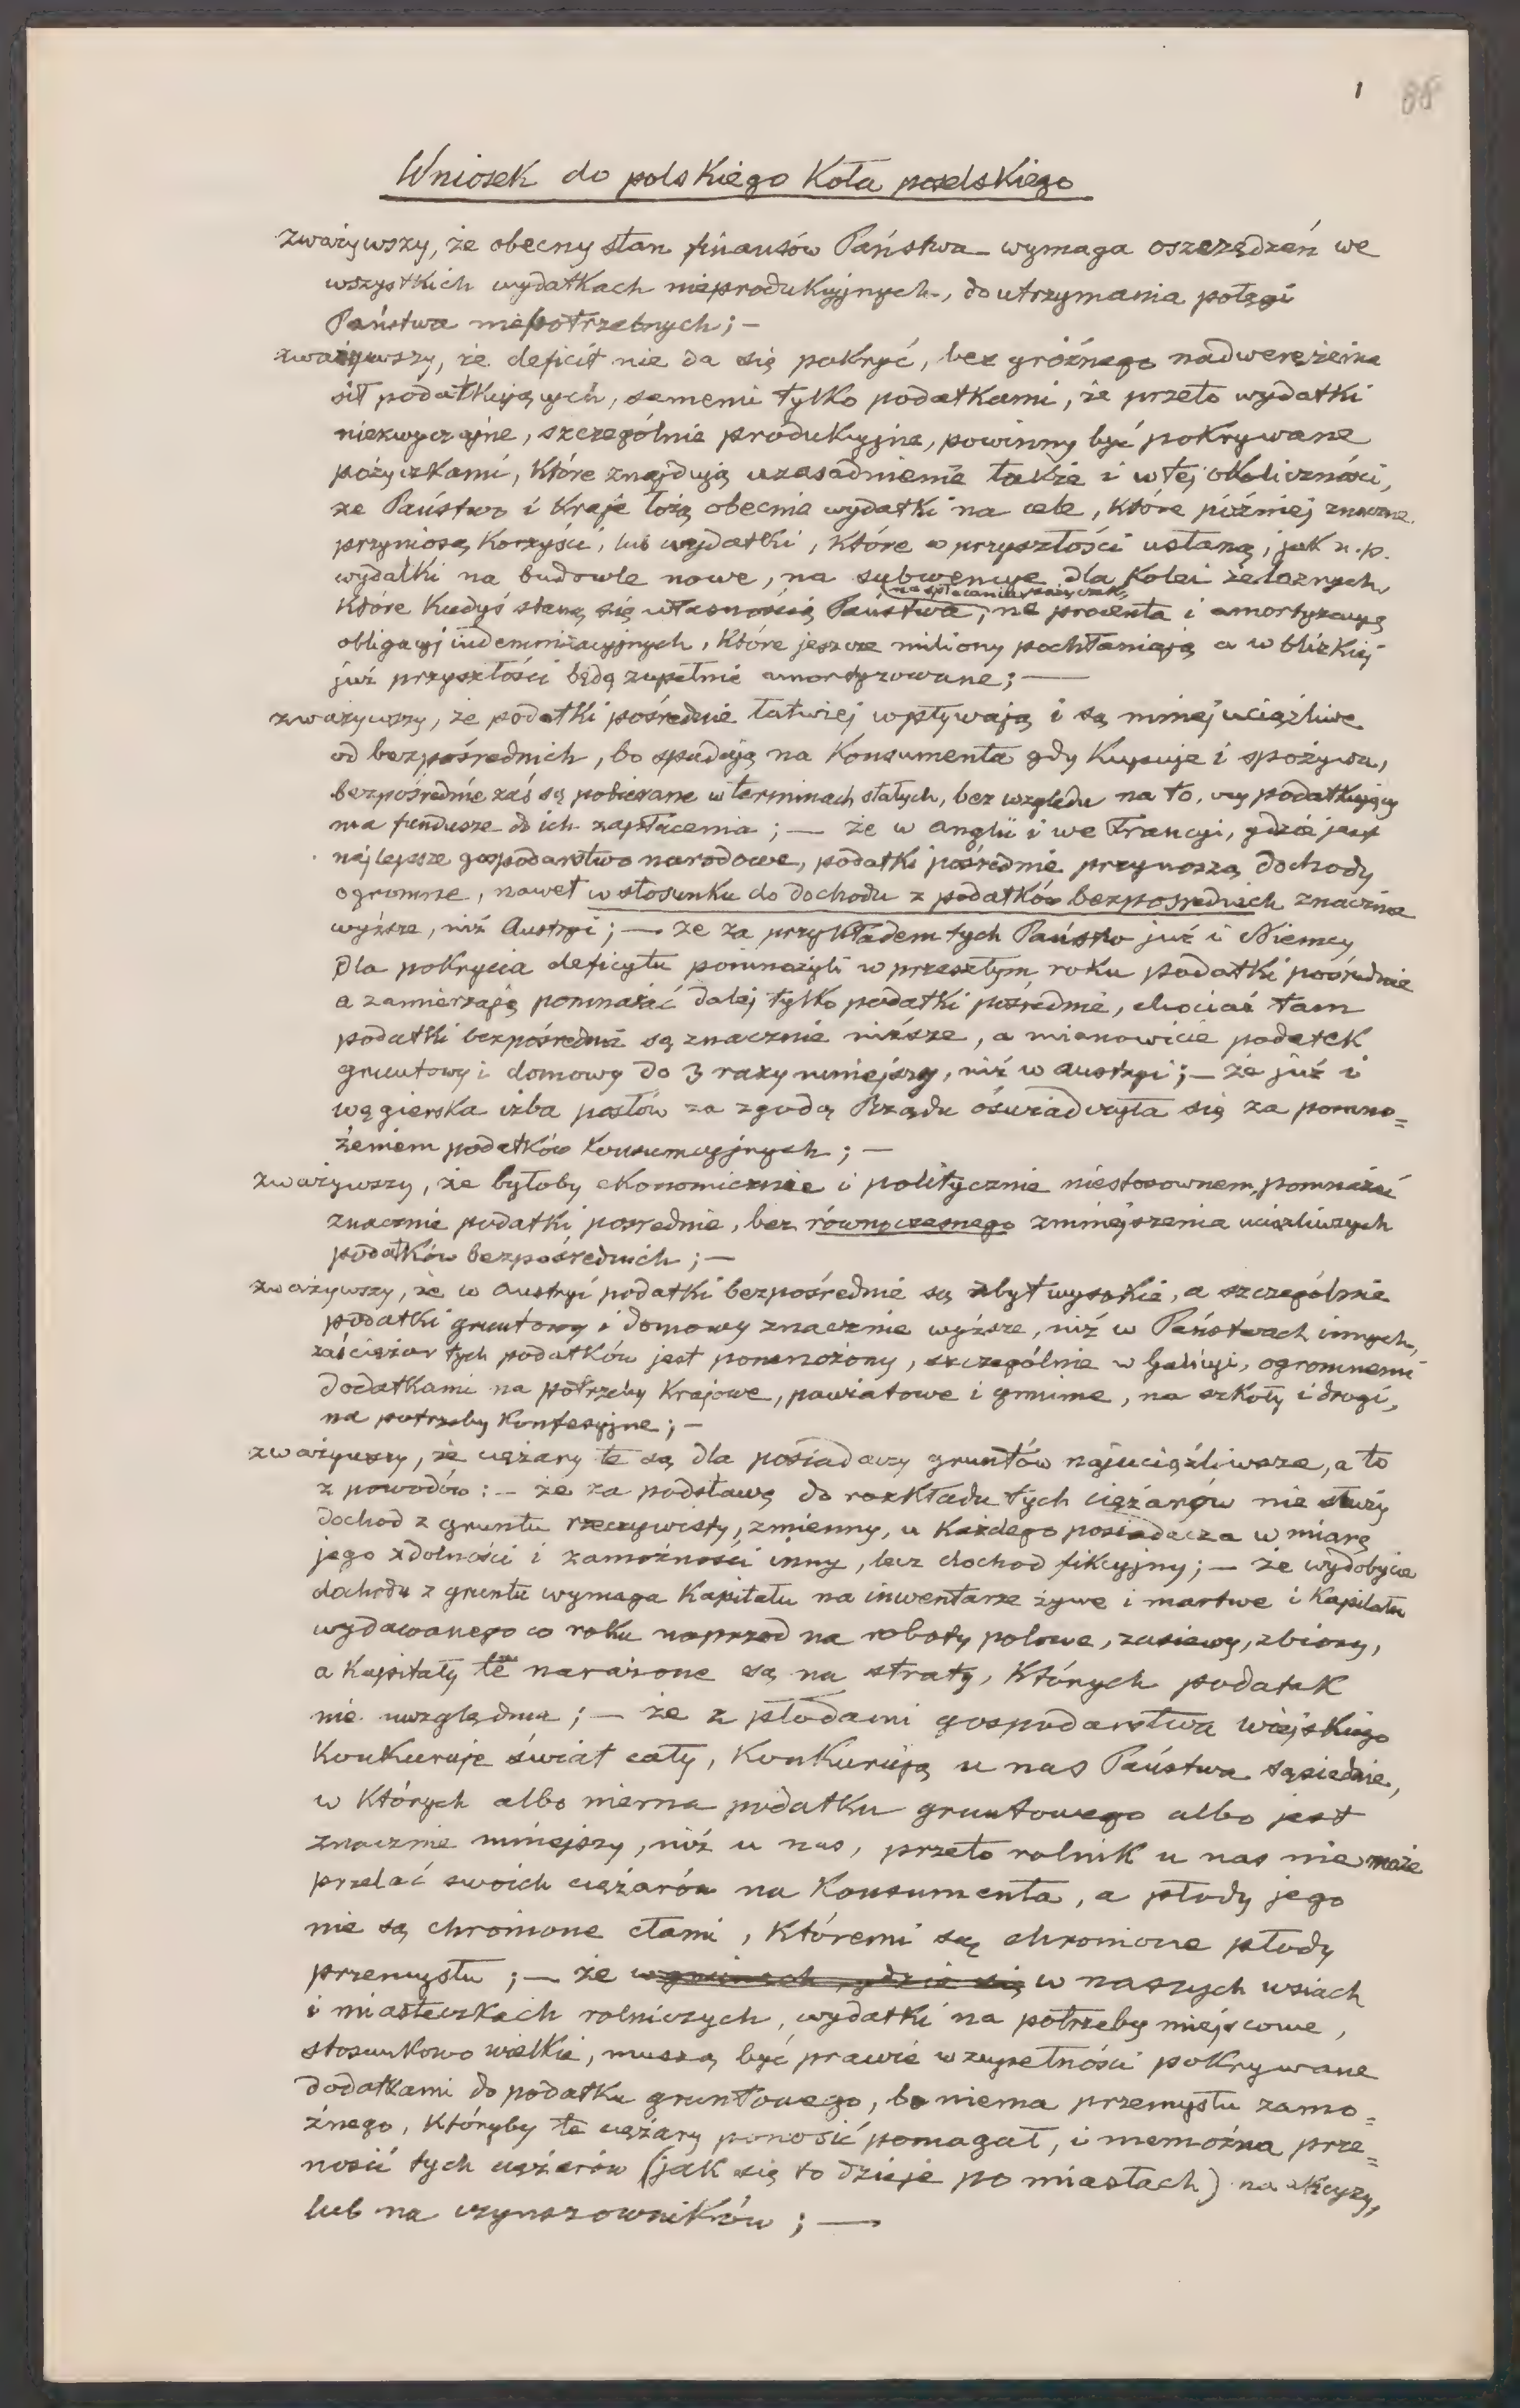 1 88
Wniosek do polskiego Koła poselskiego
zważywszy, że obecny stan finansów Państwa wymaga oszczędzeń we
wszystkich wydatkach nieprodukcyjnych, do utrzymania potęgi
Państwa niepotrzebnych; —
zważywszy, że deficit nie da się pokryć, bez groźnego nadwerężenia
sił podatkujących, samemi tylko podatkami, że przeto wydatki
niezwyczajne, szczególnie produkcyjne, powinny być pokrywane
pożyczkami, które znajdują uzasadnienie także i w tej okoliczności,
że Państwo i Kraje łożą obecnie wydatki na cele, które później znaczne
przyniosą korzyści, lub wydatki, które w przyszłości ustaną, jak n.p.
wydatki na budowle nowe, na subwencye dla kolei żelaznych,
na spłacanie pożyczek,
które kiedyś staną się własnością Państwa, na procenta i amortyzacyą
obligacyj indemnizacyjnych, które jeszcze miliony pochłaniają a w blizkiej
już przyszłości będą zupełnie amortyzowane; —
zważywszy, że podatki pośrednie łatwiej wpływają i są mniej uciążliwe
od bezpośrednich, bo spadają na Konsumenta gdy Kupuje i spożywa,
bezpośrednie zaś są pobierane w terminach stałych, bez względu na to, czy podatkujący
ma fundusze do ich zapłacenia; — że w Anglii i we Francyi, gdzie jest
najlepsze gospodarstwo narodowe, podatki pośrednie przynoszą dochody
ogromne, nawet w stosunku do dochodu z podatków bezpośrednich znacznie
wyższe, niż Austryi; — że za przykładem tych Państw już i Niemcy
dla pokrycia deficytu pomnożyli w przeszłym roku podatki pośrednie
a zamierzają pomnażać dalej tylko podatki pośrednie, chociaż tam
podatki bezpośrednie są znacznie niższe, a mianowicie podatek
gruntowy i domowy do 3 razy mniejszy, niż w Austryi; — że już i
węgierska izba posłów za zgodą Rządu oświadczyła się za pomno=
żeniem podatków konsumcyjnych; —
zważywszy, że byłoby ekonomicznie i politycznie niestosownem, pomnażać
znacznie podatki pośrednie, bez równoczesnego zmniejszenia uciążliwszych
podatków bezpośrednich; —
zważywszy, że w Austryi podatki bezpośrednie są zbyt wysokie, a szczególnie
podatki gruntowy i domowy znacznie wyższe, niż w Państwach innych,
zaś ciężar tych podatków jest pomnożony, szczególnie w Galicyi, ogromnemi
dodatkami na potrzeby Krajowe, powiatowe i gminne, na szkoły i drogi,
na potrzeby konfesyjne; —
zważywszy, że ciężary te są dla posiadaczy gruntów najuciążliwsze, a to
z powodów: — że za podstawę do rozkładu tych ciężarów nie służy
dochod z gruntu rzeczywisty, zmienny, u każdego posiadacza w miarę
jego zdolności i zamożności inny, lecz dochod fikcyjny; — że wydobycie
dochodu z gruntu wymaga Kapitału na inwentarze żywe i martwe i Kapitału
wydawanego co roku naprzod na roboty polowe, zasiewy, zbiory,
a Kapitały te narażone są na straty, których podatek
nie uwzględnia; — że z płodami gospodarstwa wiejskiego
Konkuruje świat cały, Konkurują u nas Państwa sąsiednie,
w których albo niema podatku gruntowego albo jest
znacznie mniejszy, niż u nas, przeto rolnik u nas nie może
przelać swoich ciężarów na Konsumenta, a płody jego
nie są chronione cłami, któremi są chronione płody
przemysłu; — że w gminach, gdzie się w naszych wsiach
i miasteczkach rolniczych, wydatki na potrzeby miejscowe,
stosunkowo wielkie, muszą być prawie w zupełności pokrywane
dodatkami do podatku gruntowego, bo niema przemysłu zamo=
żnego, któryby te ciężary ponosić pomagał, i niemożna prze=
nosić tych ciężarów (jak się to dzieje po miastach) na akcyzy,
lub na czynszowników; —